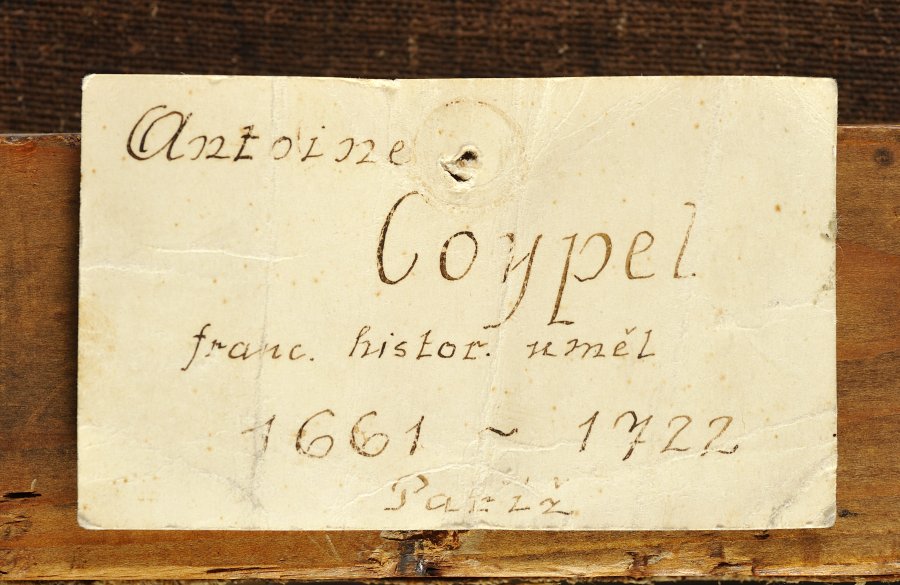 Antoine
Coypel
franc. histor. uměl
1661 ~ 1722
Paříž